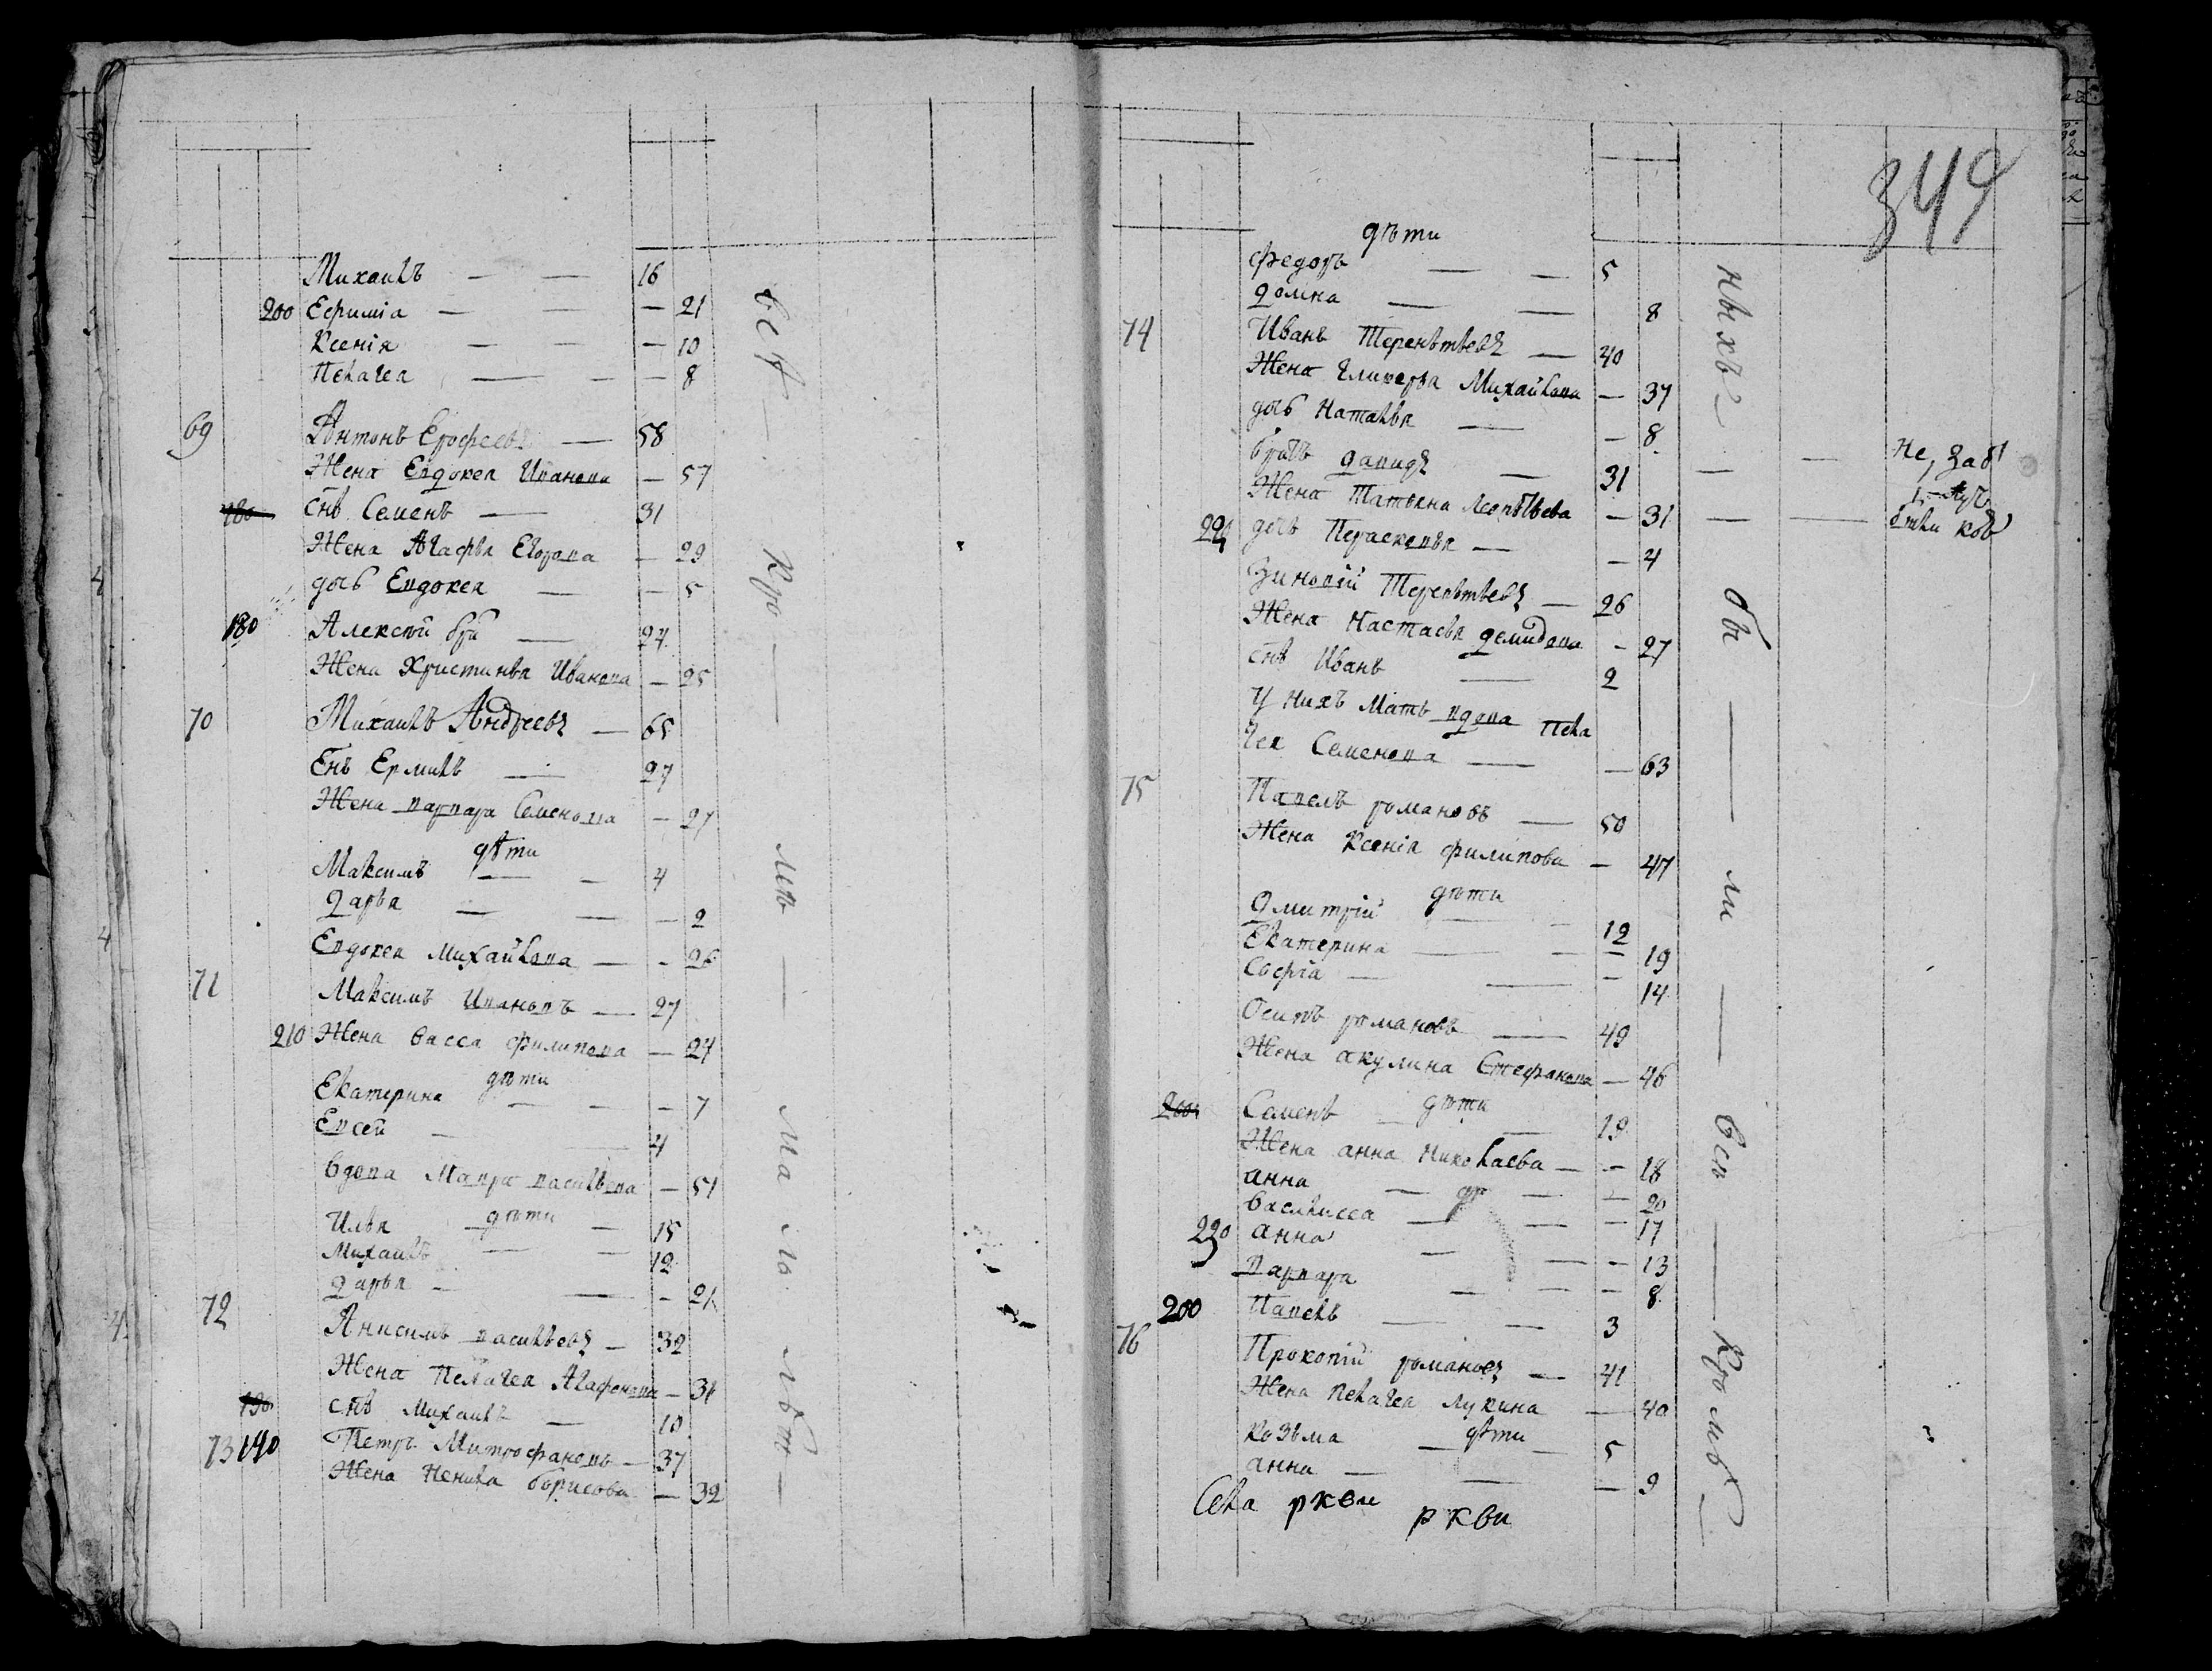 Михаилъ — — 16
200 Ефиміа — — — 21
Ксенія — — — 10
Пелагея — — — 8
69 Антонъ Ерофеевъ — 58
Жена Евдокея Иванова — 57
180 снъ Семенъ — 31
Жена Агафья Егорова — 29
дочь Евдокея — — 5
180 Алексѣй — 24
Жена Христинья Иванова — 25
70 Михаилъ Андреевъ — 65
Снъ Ермилъ — 27
Жена варвара Семенова — 27
дѣти
Максимъ — — 4
дарья — — — 2
Евдокея Михайлова — - 26
71 Максимъ Ивановъ — 27
210 Жена Васса филипова — 24
дѣти
Екатерина — — — 7
Евсей — — 4
Вдова Мавра васильева — 51
дѣти
Илья — — 15
Михаилъ — — 12
дарья — — - 21
72 Анисимъ васильевъ — 32
Жена Пелагея Агафонова — 31
190 снъ Михаилъ — 10
73 190 Петръ Митрофановъ — 37
Жена Ненила борисова — 32
всѣ — Кро — мѣ — ма ло лѣт —
349
дѣти
федоръ — — 5
домна — — 8
74 Иванъ Терентьевъ — 40
Жена Гликерья Михайлова — 37
дочь Наталья — — 8
братъ давидъ — 31 — —
Жена Татьяна Леонтьева — 31 — —
дочь Парасковья — — 4
Зиновій Терентьевъ — 26
Жена Настасья демидова - 27
снъ Иванъ — 2
У нихъ мать вдова Пела
гея Семенова — — 63
75 Павелъ романовъ — 50
Жена Ксенія филипова — 47
дѣти
Дмитрій — - 12
Екатерина — - — 19
Софіа — — — 14
Осипъ романовъ — 49
Жена акулина Стефанова — 46
дѣти
200 Семенъ — — 19
Жена анна Николаева — - 18
анна — — — 20
Василисса — — — 17
220 анна — — - 13
варвара — — — 8
200 Павелъ — — 3
76 Прокопій романовъ — 41
Жена пелагея лукина — 40
дѣти
Козьма — — 5
анна — — — 9
Села ркви
ркви
ныхъ — бы — ли — всѣ — Кромѣ —